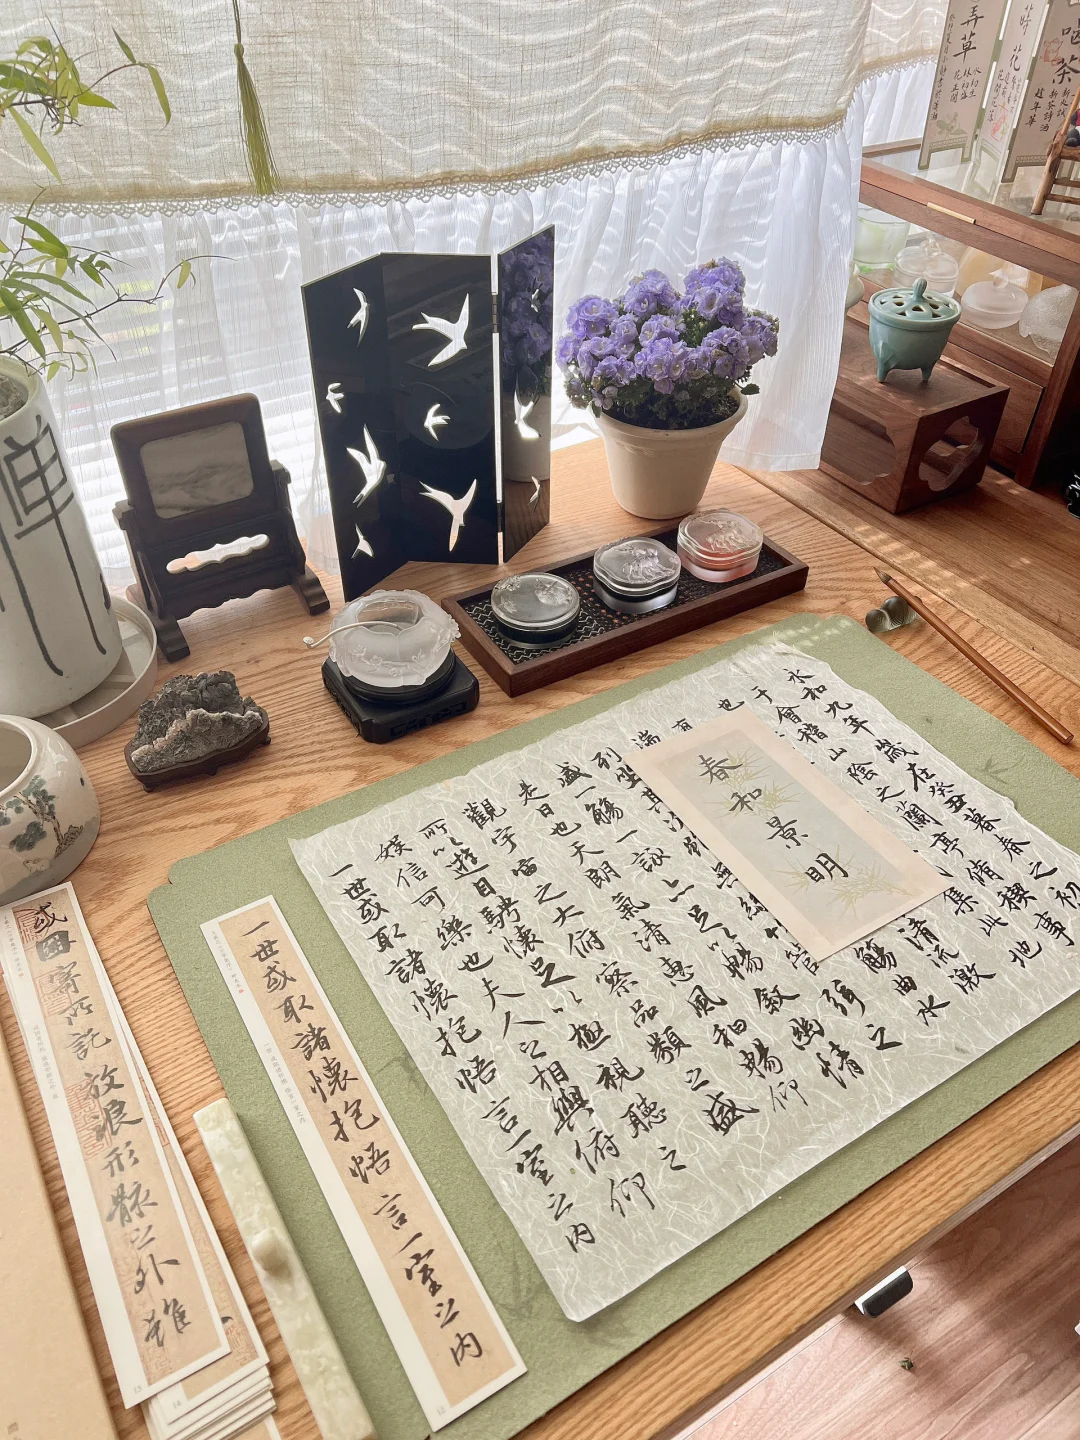 弄草
花
喝茶
禪
永和九年歲在癸丑暮春之初
于會稽山陰之蘭亭脩稧事
也
集此地
有
清流激
湍
觴曲水
列坐其次雖無絲
管弦之
盛一觴一詠亦足以暢敘幽情
是日也天朗氣清惠風和暢仰
觀宇宙之大俯察品類之盛
所以遊目騁懷足以極視聽之
娛信可樂也夫人之相與俯仰
一世或取諸懷抱悟言一室之內
春和景明
一世或取諸懷抱悟言一室之內
或因寄所託放浪形骸之外雖
12
13
14